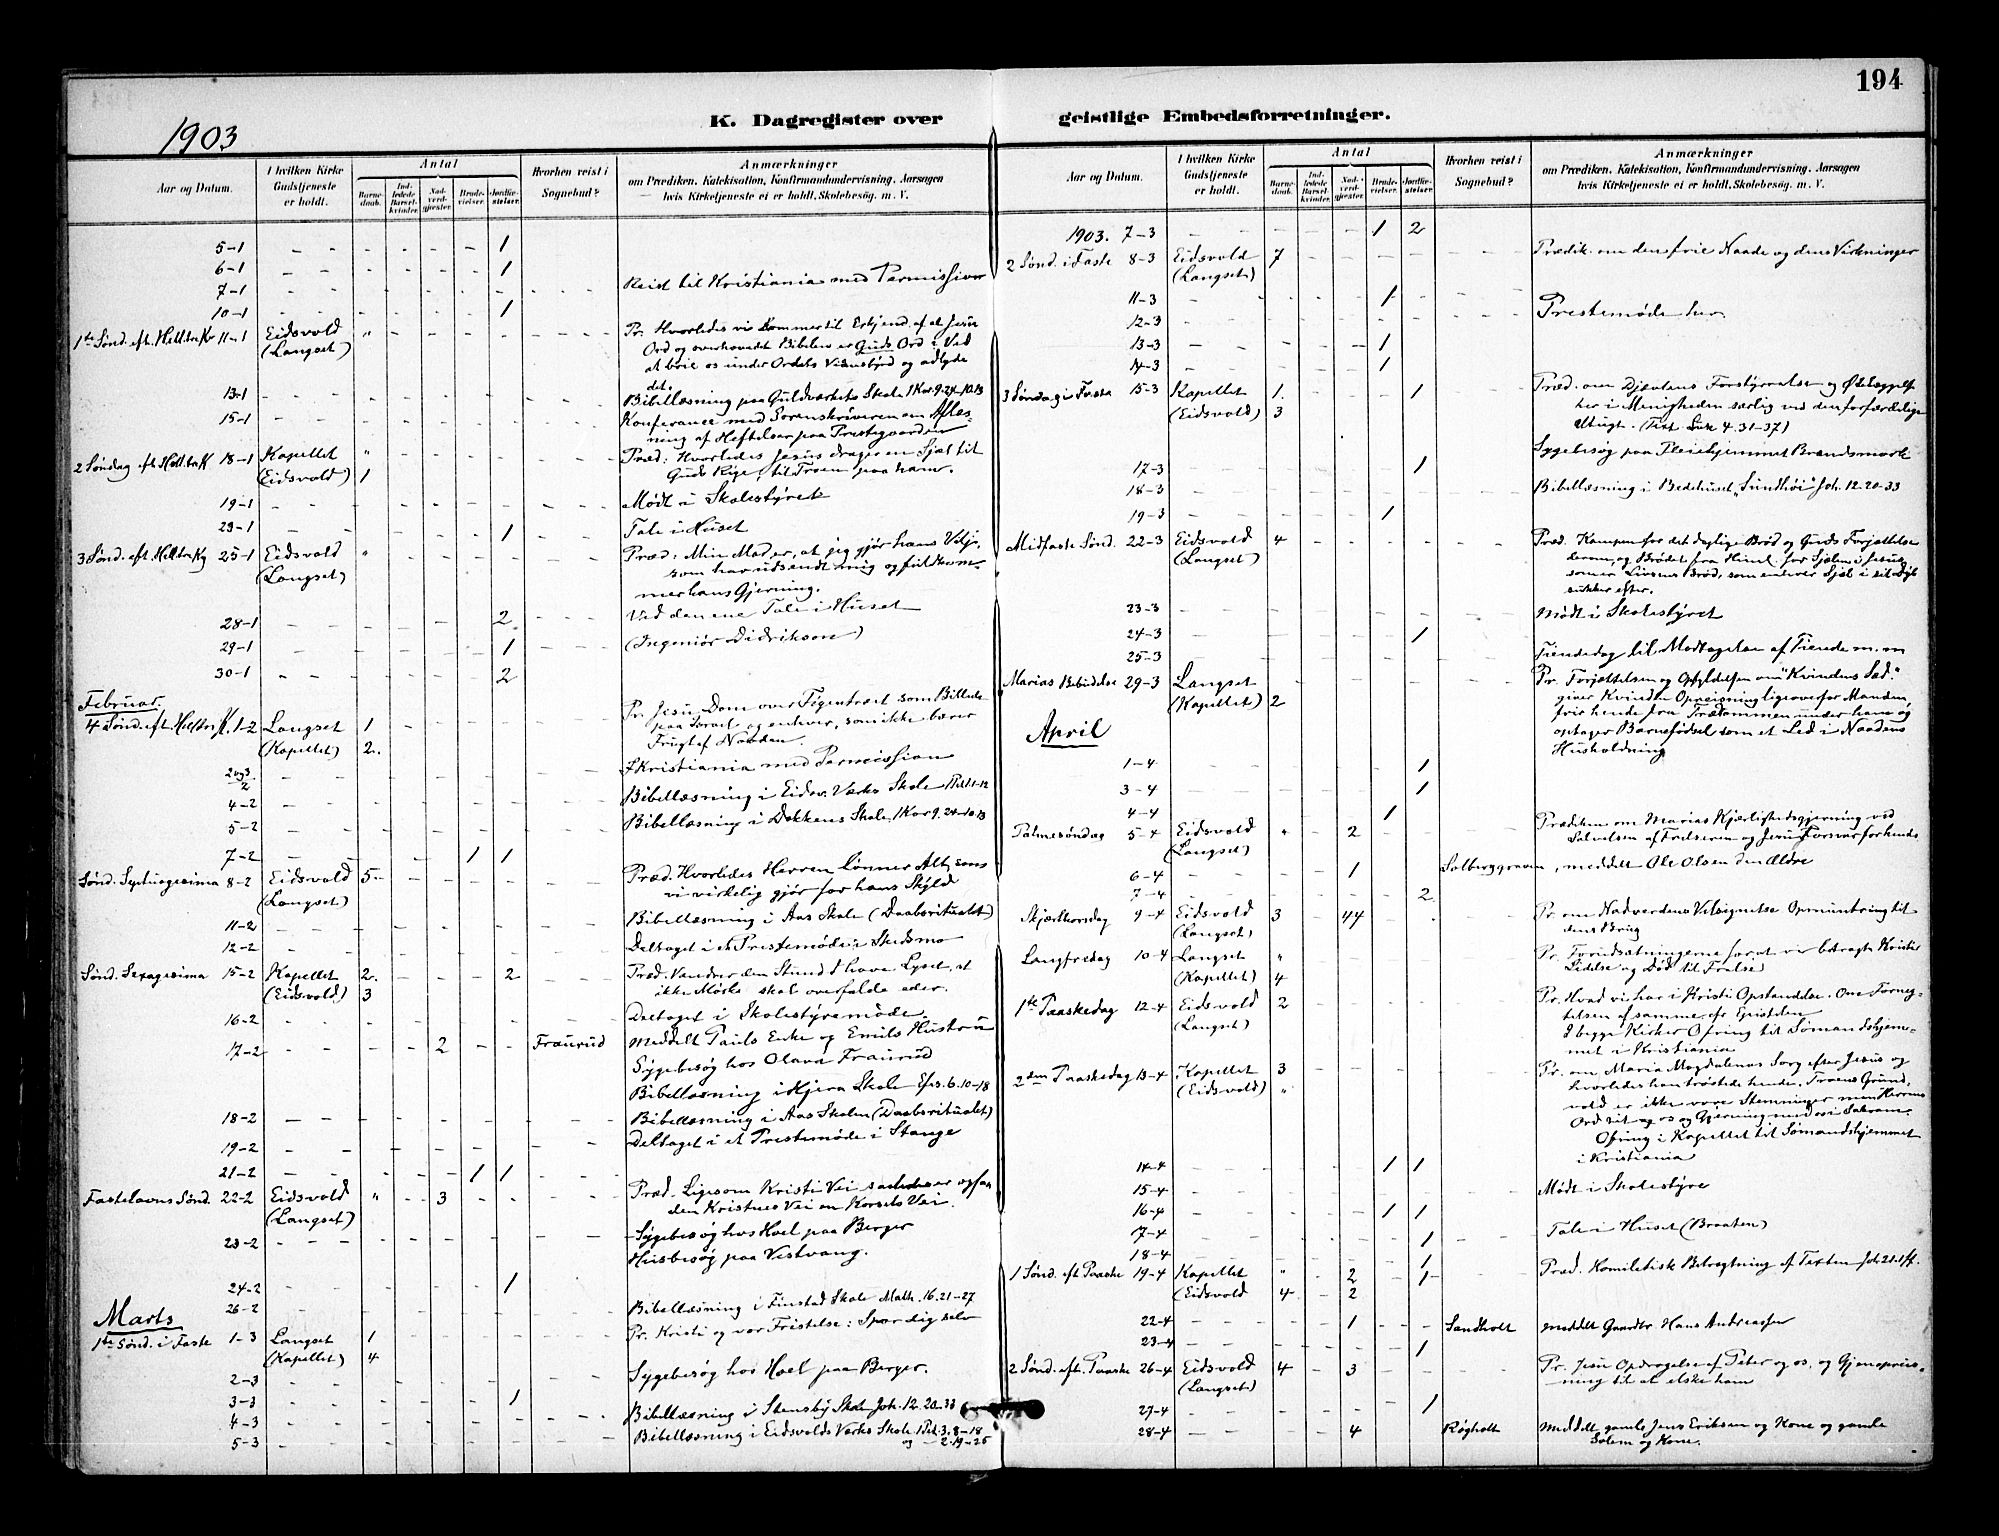 194
K. Dagregister over geistlige Embedsforretninger.
1903
Aar og Datum.
I hvilken Kirke Gudstjeneste er holdt.
Antal
Barne-daab.
Ind-ledede Barsel-kvinder.
Nad-verd-gjester.
Brude-vielser.
Jordfæ-stelser.
Hvorhen reist i Sognebud?
Anmærkninger
om Prædiken, Katekisation, Konfirmandundervisning, Aarsagen
hvis Kirketjeneste ei er holdt, Skolebesøg. m. V.
5-1 1
6-1 1
7-1 Reist til Kristiania med Permission
10-1 1
1ste Sønd. eft. Helltr.K 11-1 Eidsvold " Pr. Hvorledes vi kommer til Erkjend. af at Jesu
(Langset) Ord og overhovedet Bibelen er Guds Ord: Ved
at bøie os under Ordets Vidnesbyrd og adlyde
det.
13-1 Bibellæsning paa Guldværkets Skole 1Kor. 9.24-10.13
15-1 Konferance med Sorenskriveren om Afløs-
ning af Heftelser paa Prestegaarden
2 Søndag eft Helltr.K 18-1 Kapellet " Præd: Hvorledes Jesus drager en Sjæl til
(Eidsvold) 1 Guds Rige, til Troen paa ham.
19-1 Mødt i Skolestyret
23-1 1 Tale i Huset
3 Sønd. eft. Helltr.Kg 25-1 Eidsvold " Præd: Min Mad er, at jeg gjør hans Vilje,
(Langset) som har udsendt mig og fuldkom-
mer hans Gjerning.
28-1 2 Ved den ene Tale i Huset
29-1 1 (Ingeniør Didrikson)
30-1 2
Februar.
4 Sønd. eft. Helltr.K. 1-2 Langset 1 Pr. Jesu Dom over Figentræet som Billede
(Kapellet) 2 paa Israel og enhver, som ikke bærer
Frugt af Naaden.
2og3/2 I Kristiania med Permission
4-2 Bibellæsning i Eidsv. Værks Skole 1 Pet. 1.1-12
5-2 Bibellæsning i Dokkens Skole 1 Kor 9.24-10.13
7-2 1 1
Sønd. Septuagesima 8-2 Eidsvold 5 Præd. Hvorledes Herren lønner Alt, som
(Langset) vi virkelig gjør for hans Skyld
11-2 Bibellæsning i Aas Skole (Daabsritualet)
12-2 Deltaget i et Prestemøde i Skedsmo
Sønd. Sexagesima 15-2 Kapellet 2 2 Præd. Vandrer den Stund I have Lyset, at
(Eidsvold) 3 ikke Mørke skal overfalde eder.
16-2 Deltaget i Skolestyremøde.
17-2 2 Fraurud Meddelt Pauls Enke og Emils Hustru
Sygebesøg hos Olava Fraurud
Bibellæsning i Hjera Skole Efes. 6.10-18
18-2 Bibellæsning i Aas Skolen (Daabsritualet)
19-2 Deltaget i et Prestemøde i Stange
21-2 1 1
Fastelavns Sønd. 22-2 Eidsvold " 3 Præd. Ligesom Kristi Vei saaledes er ogsaa
(Langset) den Kristnes Vei en Korsets Vei.
23-2 Sygebesøg hos Hoel paa Berger
Husbesøg paa Vestvang.
24-2 1
26-2 Bibellæsning i Finstad Skole Math. 16.21-27
Marts
1ste Sønd. i Faste 1-3 Langset 1 Pr. Kristi og vor Fristelse: Spar dig selv
(Kapellet) 4
2-3 Sygebesøg hos Hoel paa Berger.
3-3 1
4-3 Bibellæsning i Stensby Skole Joh. 12.20-33
5-3 Bibellæsning i Eidsvolds Værks Skole 1 Pet. 3.8-18
og - 2.19-25
Aar og Datum.
I hvilken Kirke Gudstjeneste er holdt.
Antal
Barne-daab.
Ind-ledede Barsel-kvinder.
Nad-verd-gjester.
Brude-vielser.
Jordfæ-stelser.
Hvorhen reist i Sognebud?
Anmærkninger
om Prædiken, Katekisation, Konfirmandundervisning, Aarsagen
hvis Kirketjeneste ei er holdt, Skolebesøg. m. V.
1903. 7-3 1 2
2 Sønd. i Faste 8-3 Eidsvold 7 Prædik. om den frie Naade og dens Virkninger
(Langset)
11-3 1
12-3 Prestemøde her
13-3 1
14-3 1
3 Søndag i Faste 15-3 Kapellet 1 1 Præd. om Djævlens Forstyrrelse og Ødelæggelse
(Eidsvold) 3 her i Menigheden særlig ved den forfærdelige
Utugt. (Text Luk 4.31-37)
17-3 1 Sygebesøg paa Pleiehjemmet Brandsmork
18-3 Bibellæsning i Bedehuset "Sundhøi" Joh. 12.20-33
19-3 1
Midfaste Sønd. 22-3 Eidsvold 4 Præd. Kampen for det daglige Brød og Guds Forjættelse
(Langset) derom, og Brødet fra Himl. for Sjælen i Jesus
som er Livsens Brød, som enhver Sjæl i sit Dyb
sukker efter.
23-3 Mødt i Skolestyret
24-3 1
25-3 Tiendedag til Modtagelse af Tiende m.m
Marias Bebudelse 29-3 Langset Pr. Forjættelsen og Opfyldelsen om "Kvindens Sæd"
(Kapellet) 2 giver Kvinden Opreisning ligeoverfor Manden,
frir hende fra Trældommen under ham og
optager Barnefødsel som et Led i Naadens
Husholdning
April
1-4 1
3-4 1
4-4 1
Palmesøndag 5-4 Eidsvold " 2 Prædiken om Marias Kjærlighedsgjerning ved
(Langset) Salvelsen af Frelseren og Jesu Forsvar for hende
6-4 1 Solberggraven, meddelt Ole Olsen den ældre
7-4 2
Skjærthorsdag 9-4 Eidsvold 3 44 Pr. om Nadverdens Velsignelse Opmuntring til
(Langset) dens Brug
Langfredag 10-4 Langset " Pr. Forudsætningerne for at vi betragte Kristi
(Kapellet) 4 Lidelse og Død til Frelse
1ste Paaskedag 12-4 Eidsvold 2 Pr. Hvad vi har i Kristi Opstandelse. Om Forneg-
(Langset) telsen af samme, efr Epistelen
I begge Kirker Ofring til Sømandshjem-
met i Kristiania
2den Paaskedag 13-4 Kapellet 3 Pr. om Maria Magdalenas Sorg efter Jesus og
(Eidsvold) " hvorledes han trøstede hende. Troens Grund-
vold er ikke vore Stemninger men Herrens
Ord til og os og Gjerning med os i Sakram.
Ofring i Kapellet til Sømandshjemmet
i Kristiania
14-4 1 1
15-4 Mødt i Skolestyre
16-4 1 1
17-4 1 Tale i Huset (Braaten)
18-4 1
1 Sønd. eft Paaske 19-4 Kapellet " 2 1 Præd. Homiletisk Betragtning af Texten Joh. 21.1ff.
(Eidsvold 4 2
22-4 1 Sandholt meddelt Gaardbr. Hans Andreassen
23-4 1
2 Sønd. eft. Paaske 26-4 Eidsvold 4 3 Pr. Jesu Opdragelse af Peter og os, og Gjenoprei-
(Langset) ning til at elske ham
27-4 1
28-4 4 Røgholt meddelt gamle Jens Eriksen og Kone og gamle
Solem og Kone.